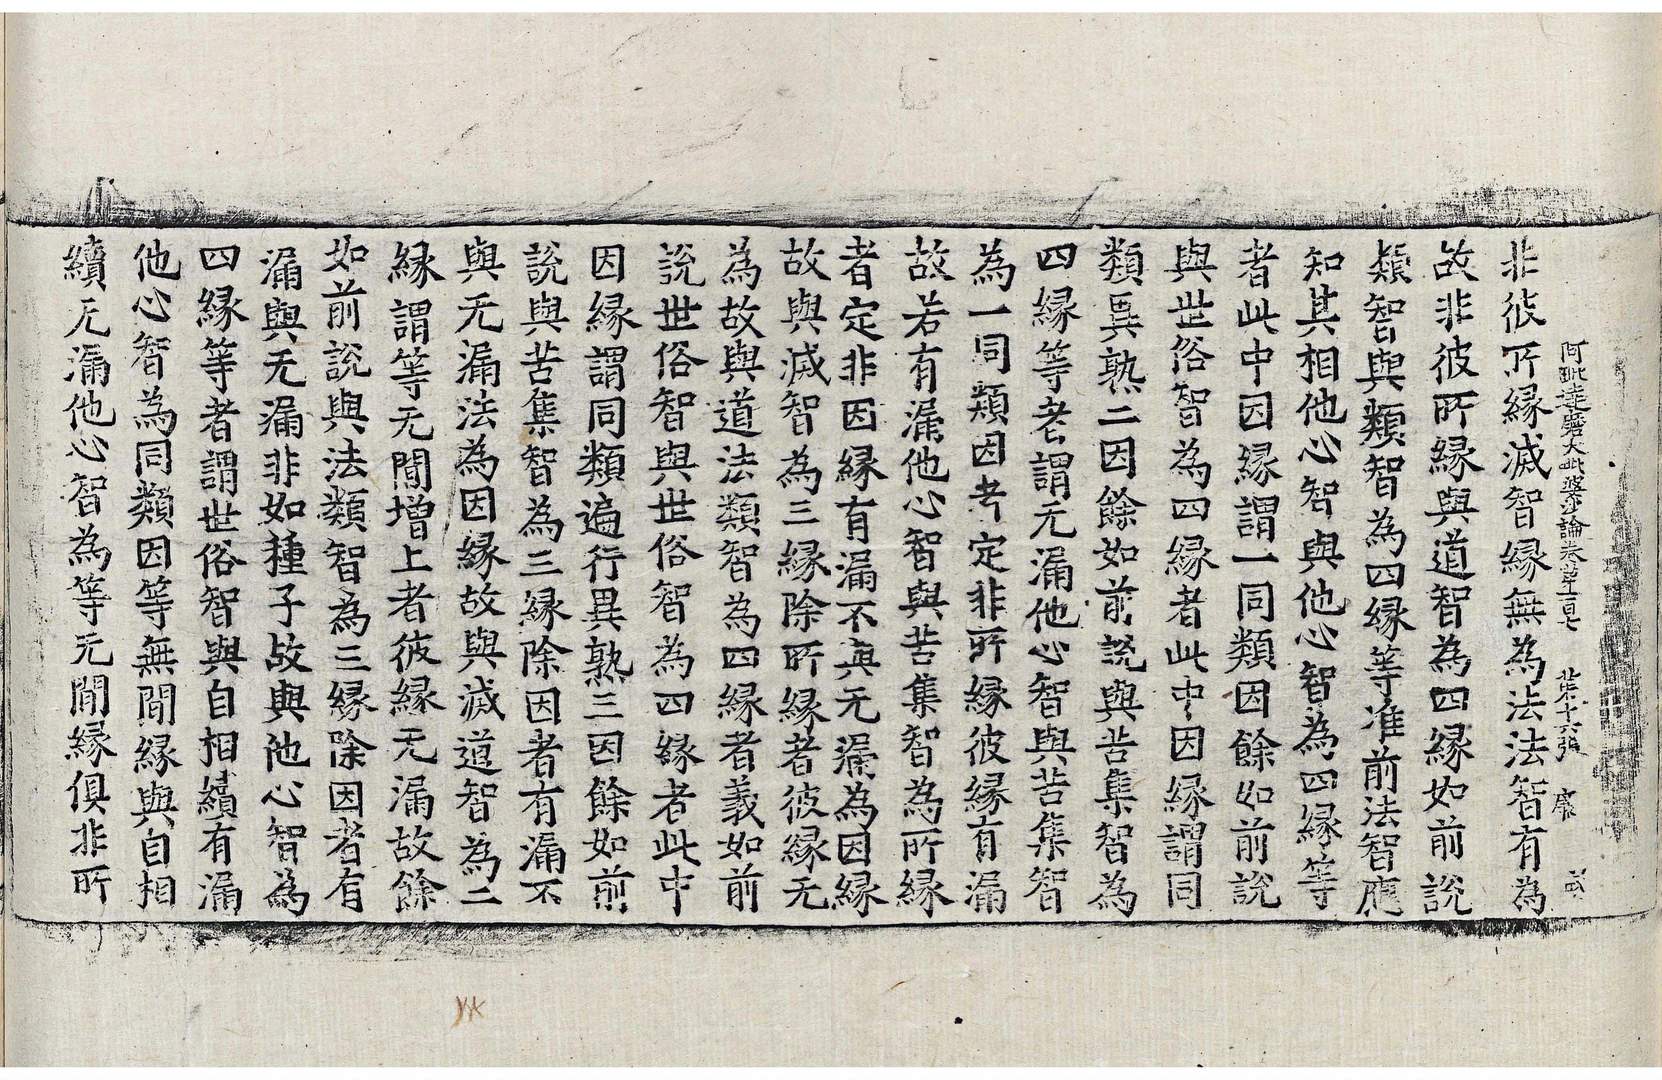 阿毗達磨大毗婆沙論卷苐一百七 苐十六張 廉
非彼所縁滅智縁無為法法智有為
故非彼所縁與道智為四縁如前說
類智與類智為四縁等准前法智應
知其相他心智與他心智為四縁等
者此中因縁謂一同類因餘如前說
與世俗智為四縁者此中因縁謂同
類異熟二因餘如前說與苦集智為
四縁等者謂无漏他心智與苦集智
為一同類因者定非所縁彼縁有漏
故若有漏他心智與苦集智為所縁
者定非因縁有漏不與无漏為因縁
故與滅智為三縁除所縁者彼縁无
為故與道法類智為四縁者義如前
說世俗智與世俗智為四縁者此中
因縁謂同類遍行異熟三因餘如前
說與苦集智為三縁除因者有漏不
與无漏法為因縁故與滅道智為二
縁謂等无間增上者彼縁无漏故餘
如前說與法類智為三縁除因者有
漏與无漏非如種子故與他心智為
四縁等者謂世俗智與自相續有漏
他心智為同類因等無間縁與自相
續无漏他心智為等无間縁俱非所